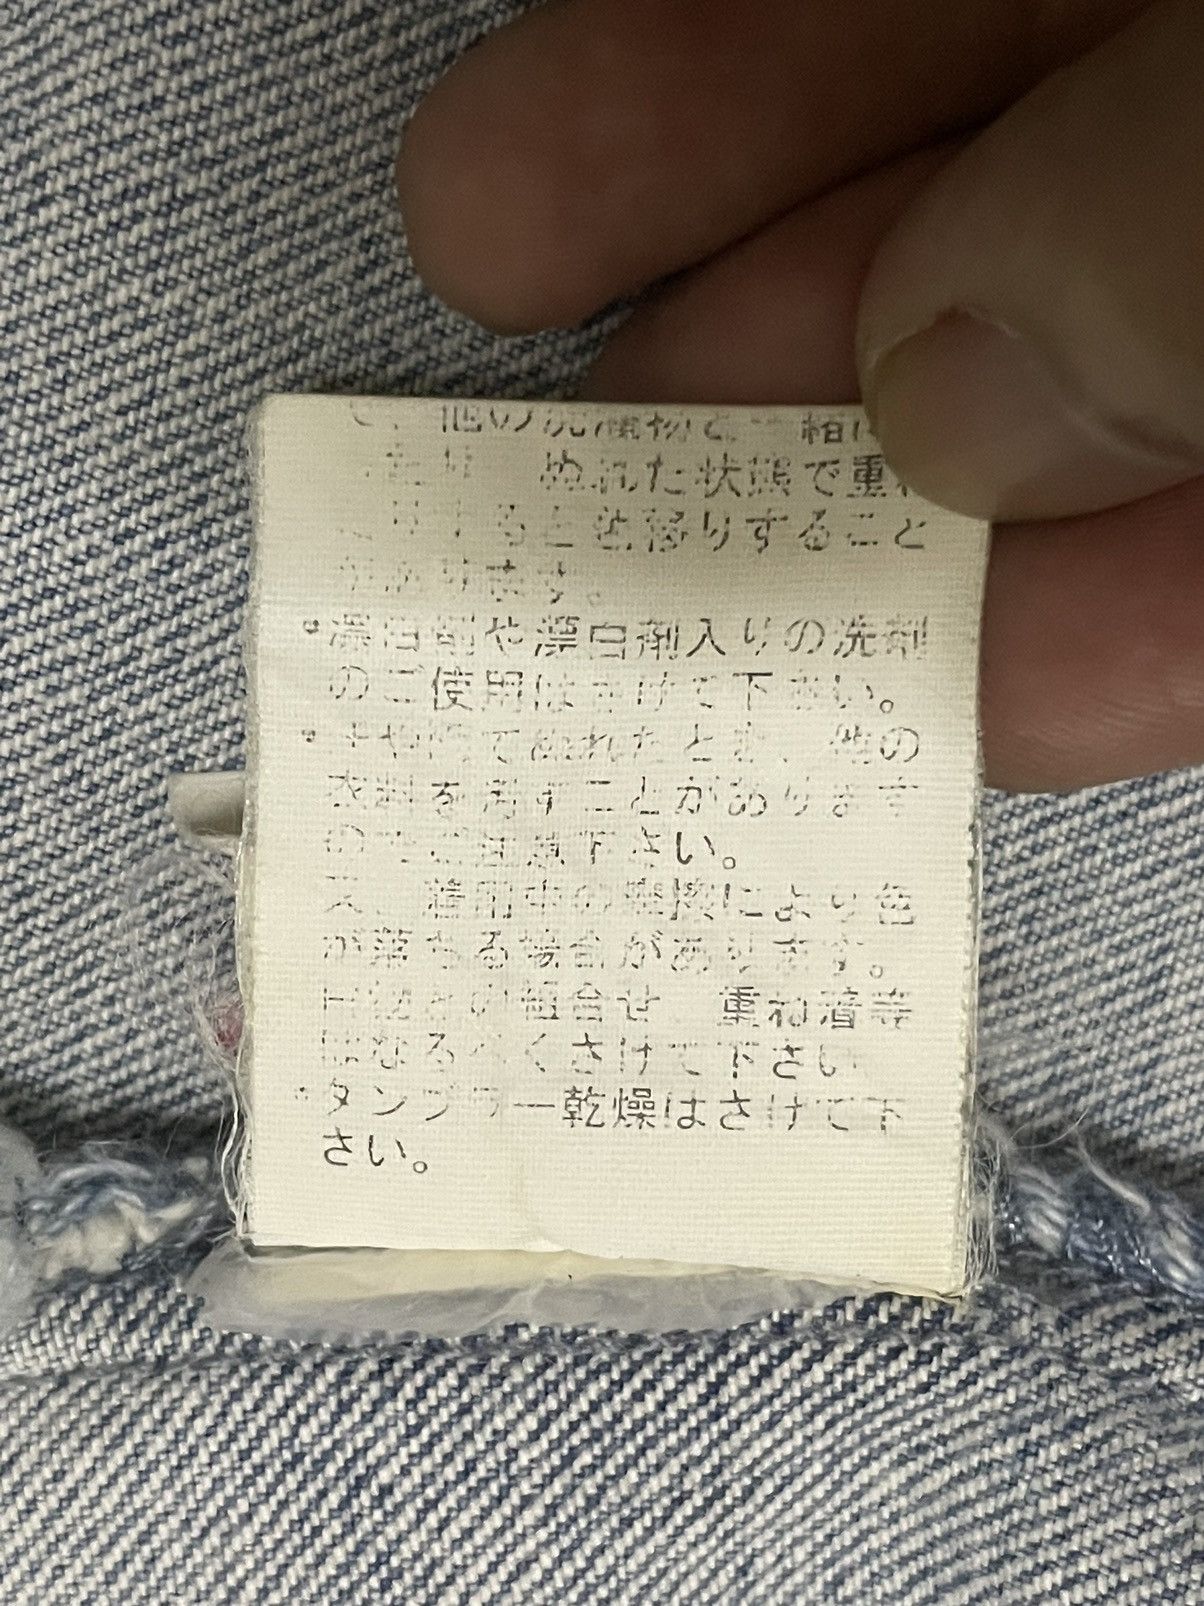 他の洗濯物と一緒に
たり、ぬれた状態で重ね
たりすると色移りすること
があります。
°漂白剤や漂白剤入りの洗剤
のご使用はさけて下さい。
°汗や雨でぬれたとき、他の
衣料を汚すことがあります
のでご注意下さい。
又、着用中の摩擦により色
が落ちる場合があります。
白物との組合せ、重ね着等
はなるべくさけて下さい
°タンブラー乾燥はさけて下
さい。